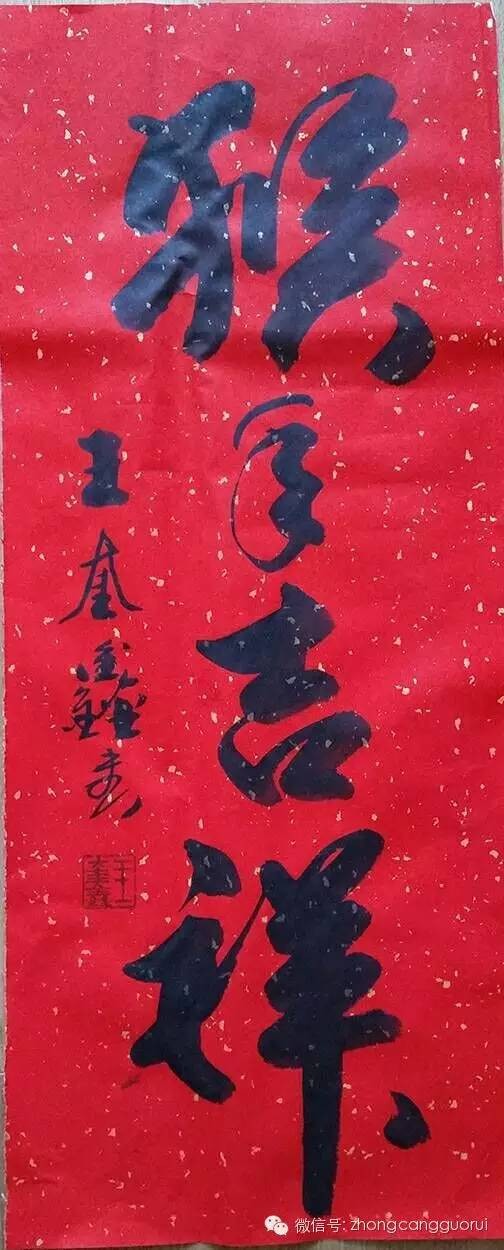 猴年吉祥
王奎鑫书
微信号: zhongcangguorui